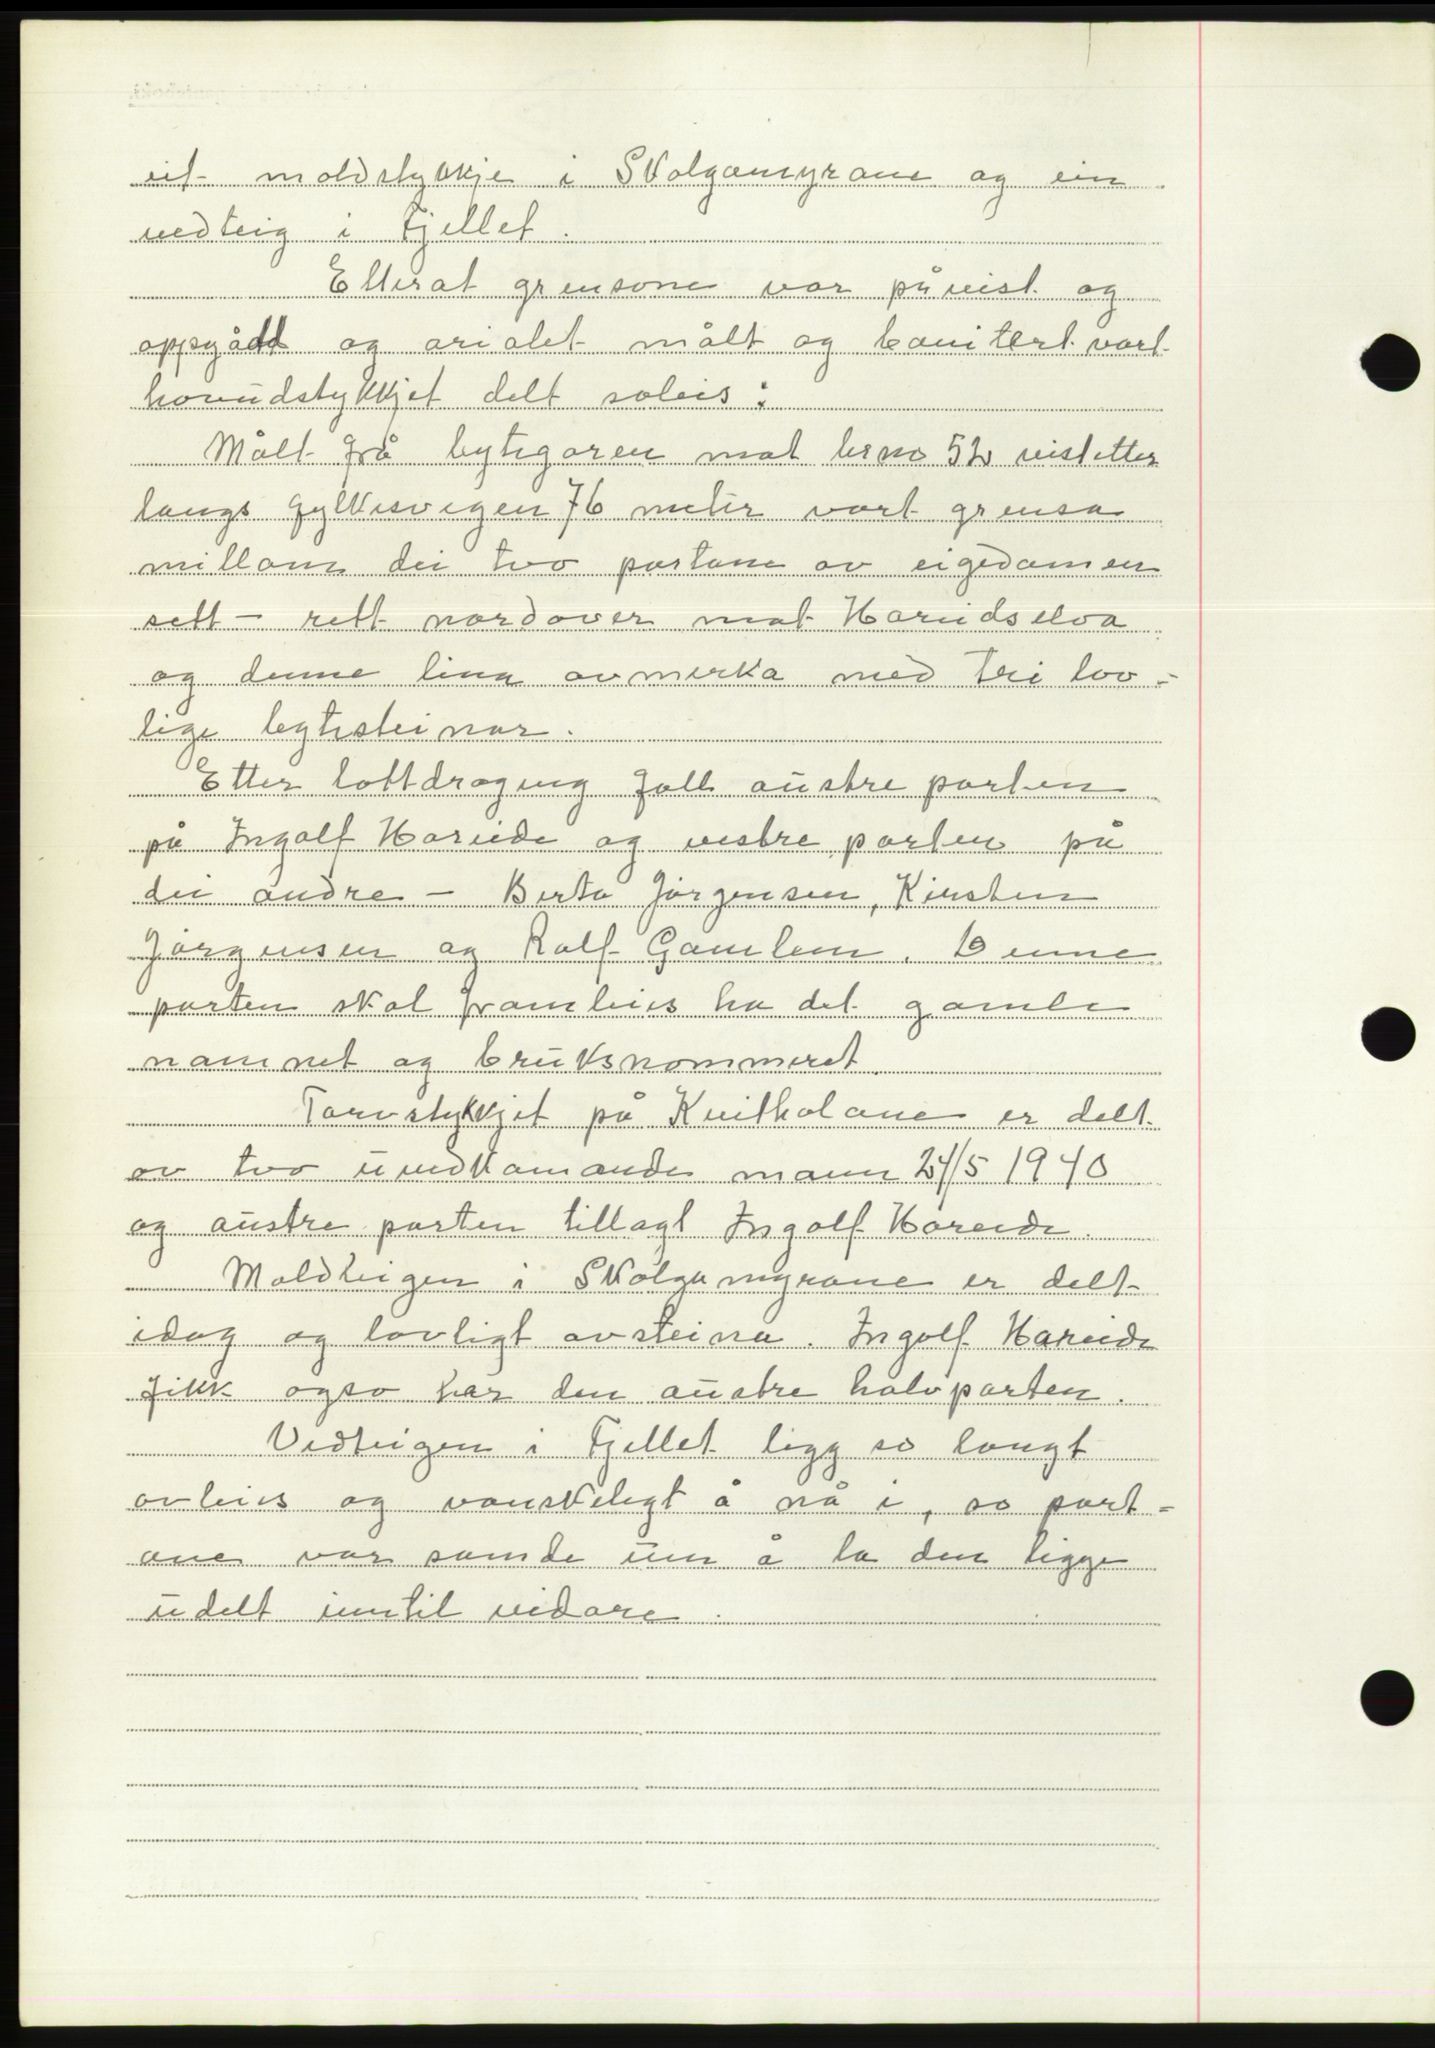 eit moldstykkje i Skolgamyrane og ein
vedteig i Fjellet.
Etterat grensone var påvist og
oppgådd og arialet målt og bonitert vart
hovudstykkjet delt soleis:
Målt frå bytegaren mot brno 52 vestetter
langs Fylkesvegen 76 meter vart grensa
millom dei tvo partane av eigedomen
sett - rett nordover mot Hareidselva
og denne lina avmerka med tri lov-
lige bytesteinar.
Etter lottdraging fall austre parten
på Ingolf Hareide og vestre parten på
dei andre - Berta Jørgensen, Kirsten
Jørgensen og Rolf Gamlem. Denne
parten skal frambeies ha det gamle
namnet og bruksnommeret.
Torvstykkjet på Kvitholane er delt
av tvo uvedkomande menn 24/5 1940
og austre parten tillagt Ingolf Hareide.
Moldteigen i Skolgamyrane er delt
idag og lovligt avsteina. Ingolf Hareide
fikk ogso her den austre halvparten.
Vedteigen i Fjellet ligg so langt
avleies og vanskeligt å nå i, so part-
ane var samde um å la den ligge
udelt inntil vidare.